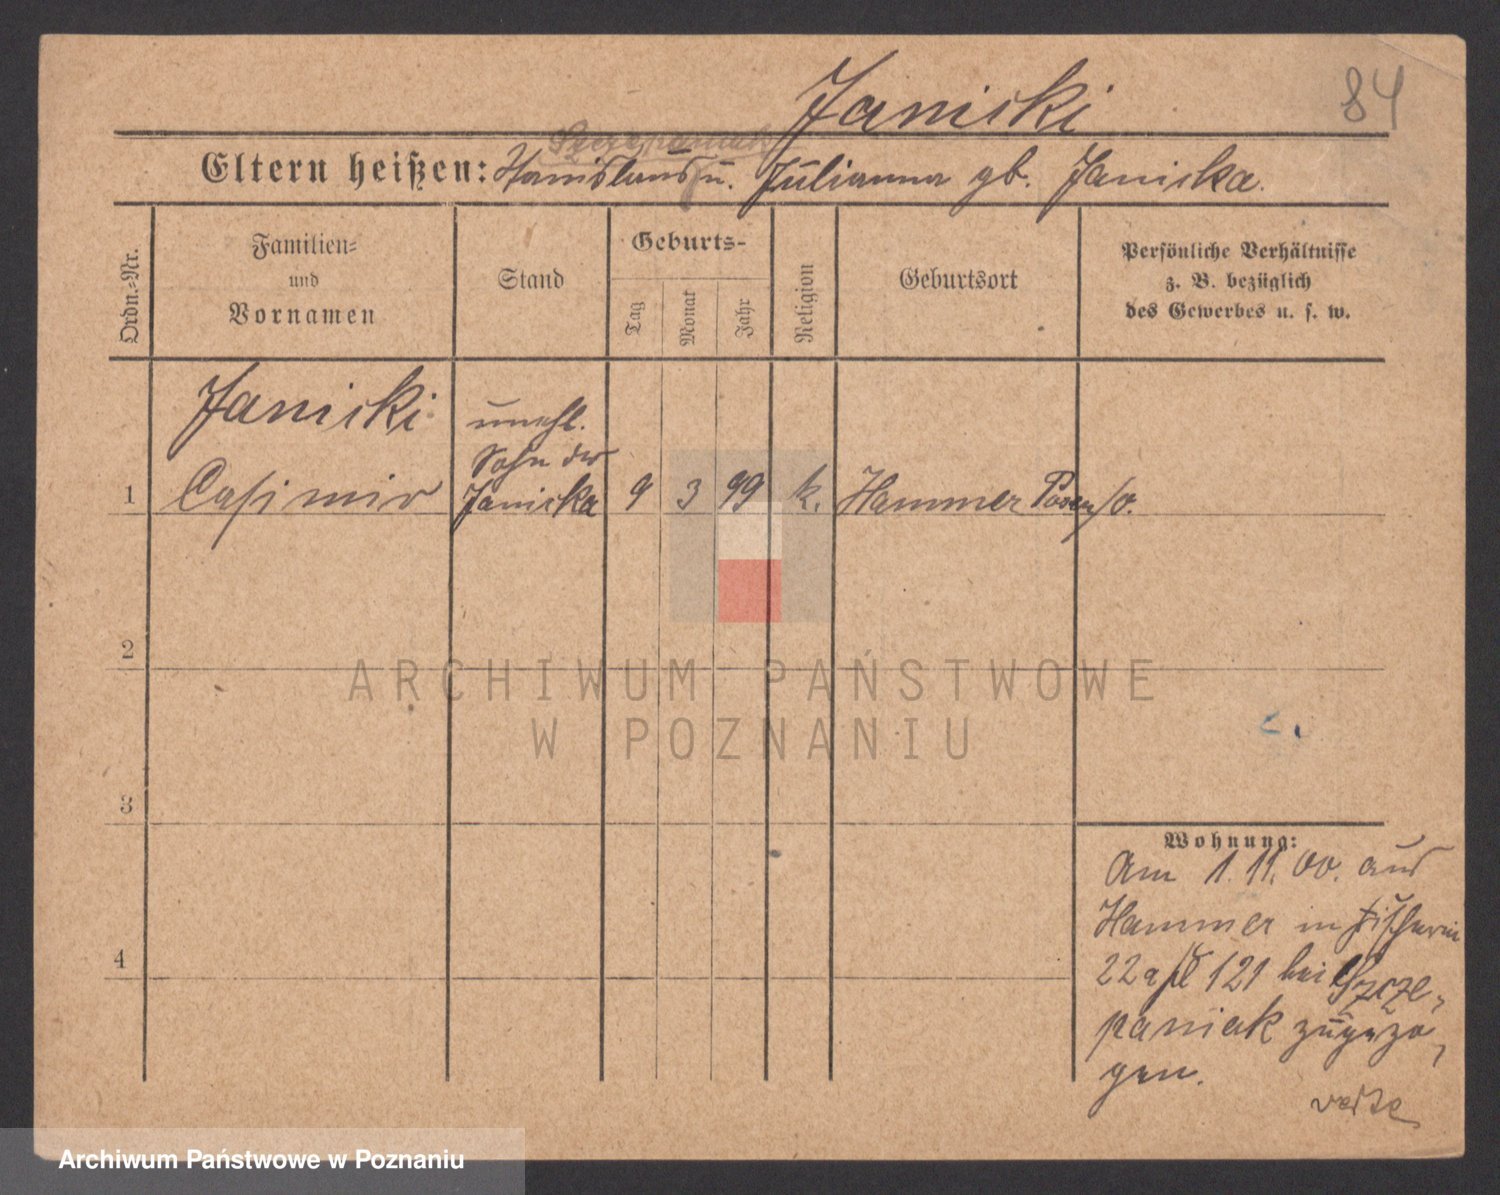 84
Janicki
Szczepaniak
Eltern heißen: Stanislaus u. Julianna gb. Janicka.
Ordn.-Nr.
Familien-
und
Vornamen
Stand
Geburts-
Tag
Monat
Jahr
Religion
Geburtsort
Persönliche Verhältnisse
z. B. bezüglich
des Gewerbes u. s. w.
Janicki
unehl.
Sohn der
1 Casimir Janicka 9 3 99 k. Hammer Posen/O.
2
ARCHIWUM PAŃSTWOWE
W POZNANIU
3
Wohnung:
Am 1.11.00. aus
Hammer in Fischerei
22a 121 bei Szcze-
4
paniak zugezo-
gen.
Archiwum Państwowe w Poznaniu